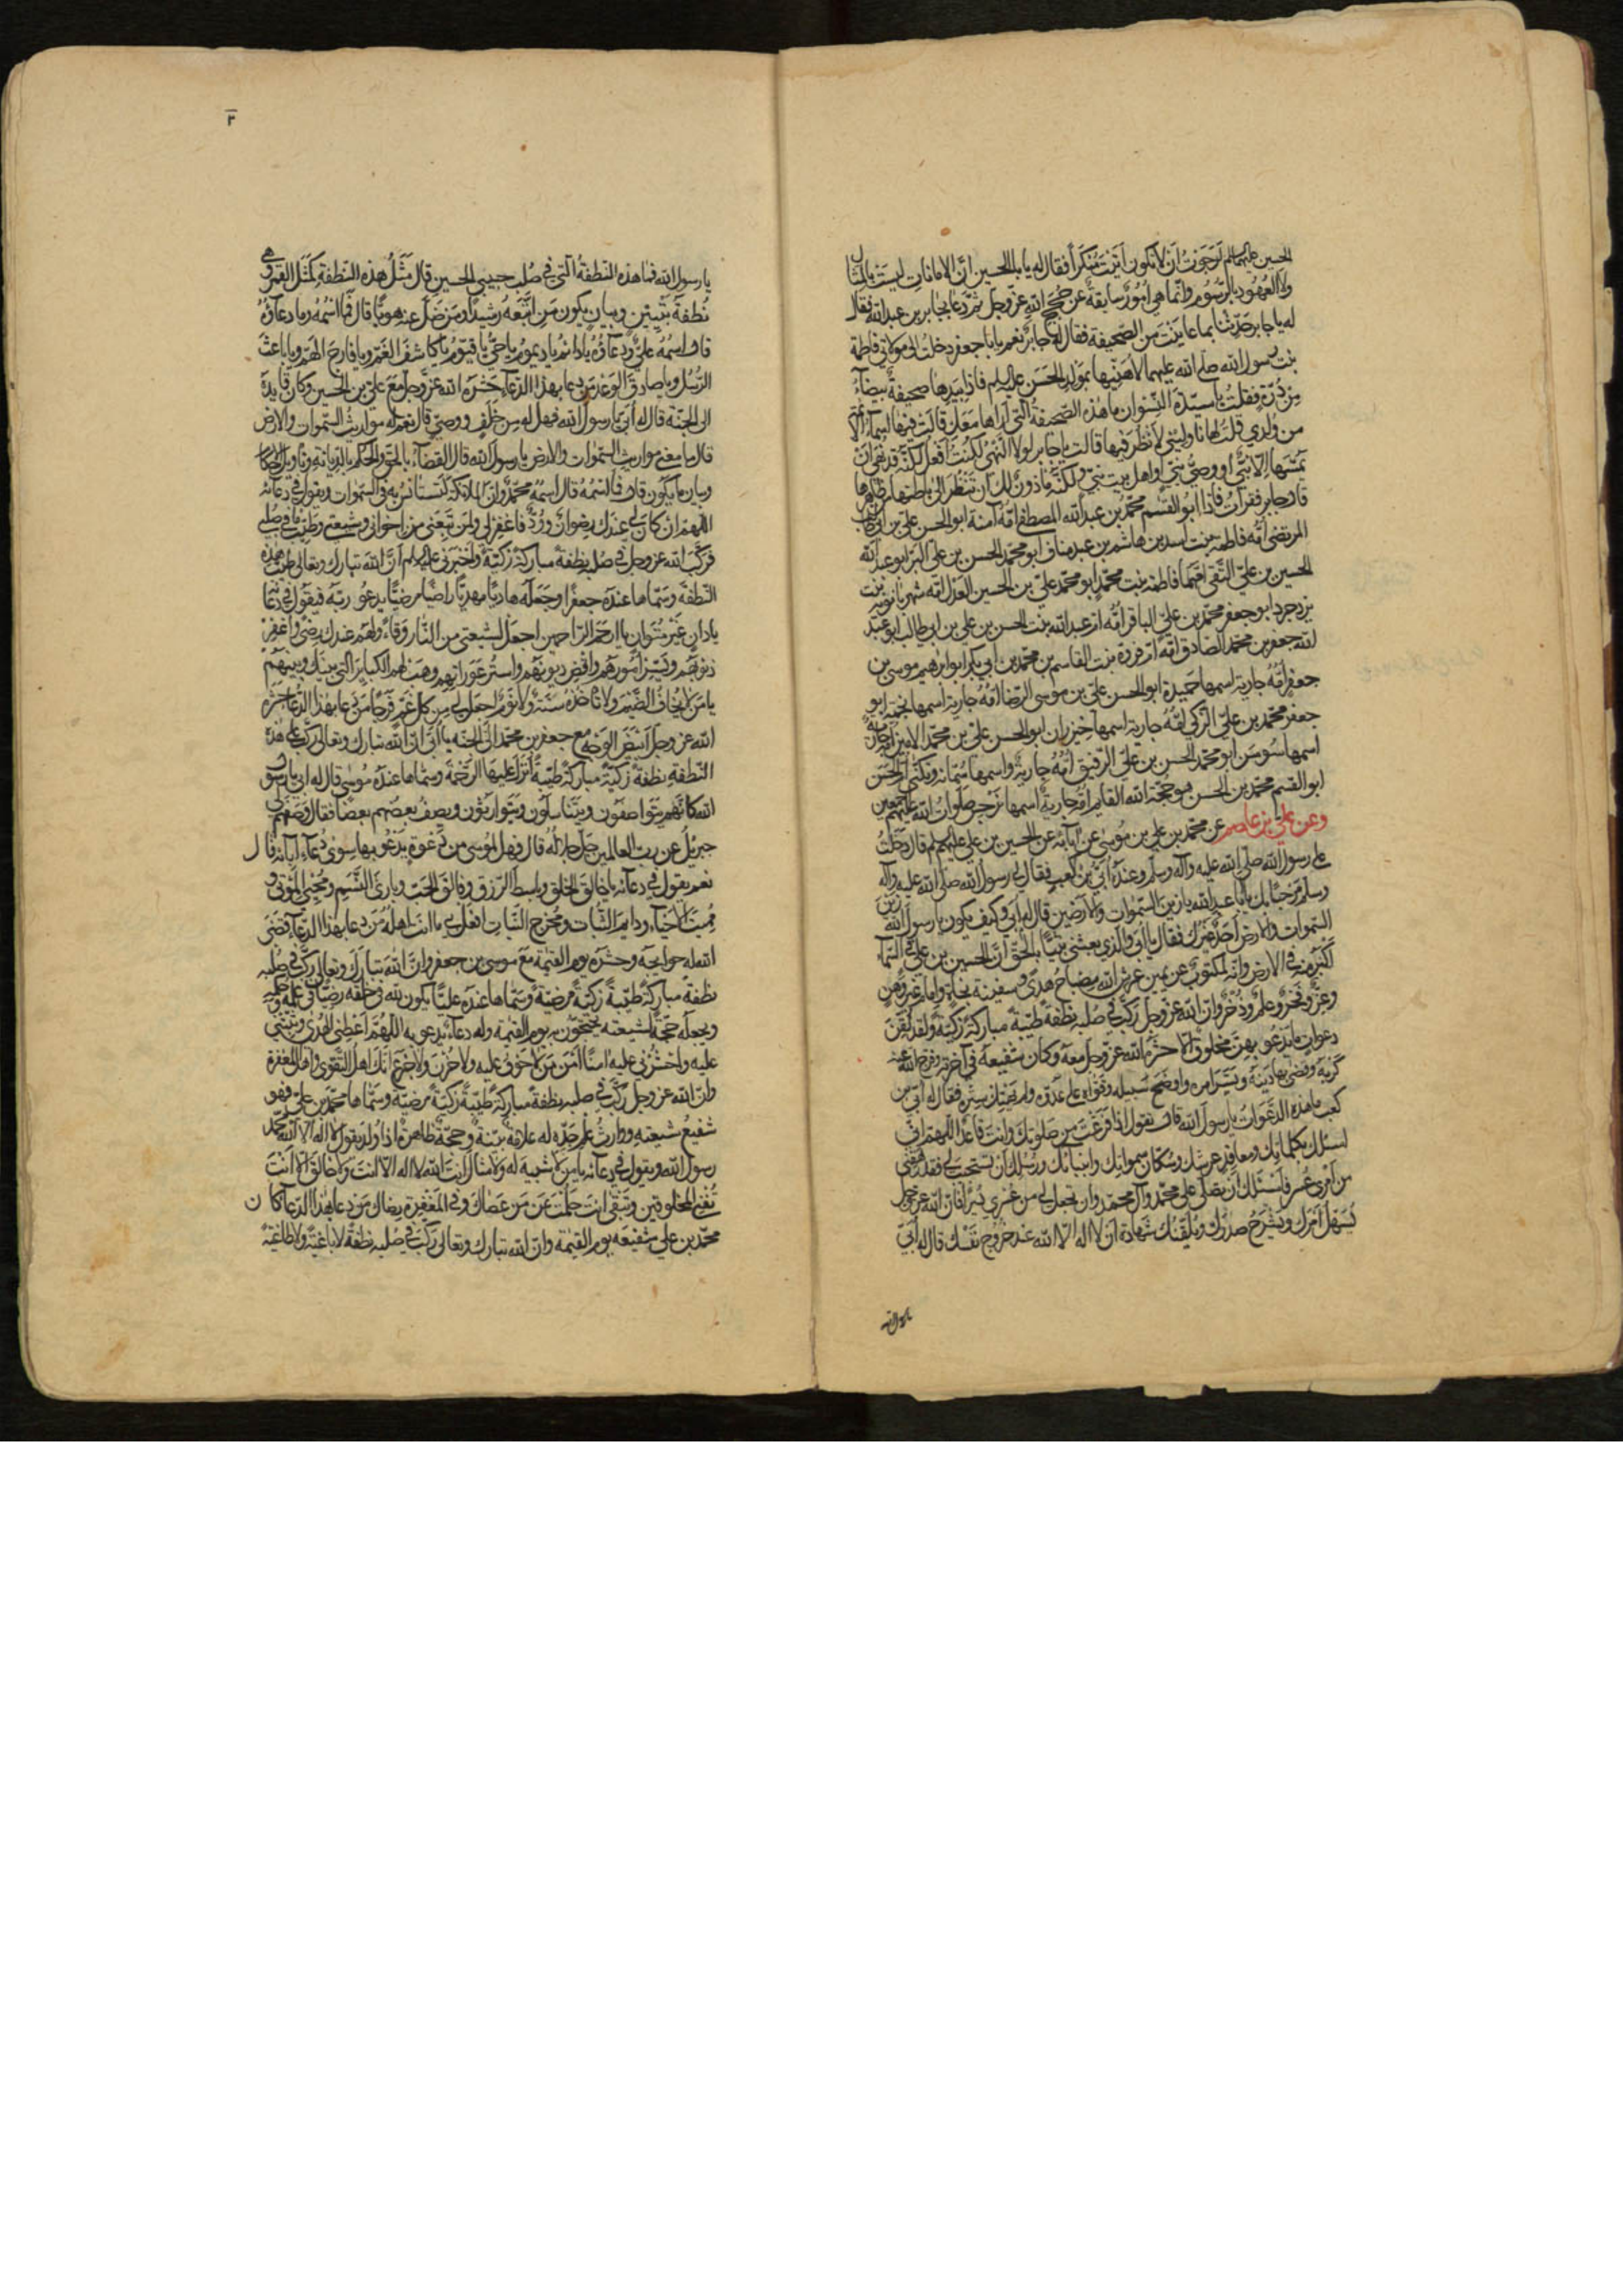 الحسين عليهما السلم لرجوت ان لا تكون اتيت منكرا فقال له يا ابا الحسين ان الامانات ليست بالمثال
ولا العهود بالرسوم وانما هي امور سابقة عن حجج الله عز وجل ثم دعا بجابر بن عبد الله فقال
له يا جابر حدثنا بما عاينت من الصحيفة فقال له جابر نعم يا با جعفر دخلت الى مولاتي فاطمة
بنت رسول الله صلى الله عليهما لاهنيها بمولد الحسن عليه السلم فاذا بيدها صحيفة بيضاء
من درة فقلت يا سيدة النسوان ما هذه الصحيفة التي اراها معك قالت فيها اسماء الائمة
من ولدي قلت لها ناوليني لانظر فيها قالت يا جابر لولا النهي لكنت افعل لكنه قد نهي ان
يمسها الا نبي او وصي نبي او اهل بيت نبي ولكنه ماذون لك ان تنظر الى باطنها من ظاهرها
قال جابر فقرات فاذا ابو القسم محمد بن عبد الله المصطفى امه آمنة ابو الحسن علي بن ابي طالب
المرتضى امه فاطمة بنت اسد بن هاشم بن عبد مناف ابو محمد الحسن بن علي البر ابو عبد الله
الحسين بن علي التقي امهما فاطمة بنت محمد ابو محمد علي بن الحسين العدل امه شهربانويه بنت
يزدجرد ابو جعفر محمد بن علي الباقر امه ام عبد الله بنت الحسن بن علي بن ابي طالب ابو عبد
الله جعفر بن محمد الصادق امه ام فروة بنت القاسم بن محمد بن ابي بكر ابو ابرهيم موسى بن
جعفر امه جارية اسمها حميدة ابو الحسن علي بن موسى الرضا امه جارية اسمها نجمة ابو
جعفر محمد بن علي الزكي امه جارية اسمها خيزران ابو الحسن علي بن محمد الامين امه جارية
اسمها سوسن ابو محمد الحسن بن علي الرفيق امه جارية واسمها سمانة وتكنى ام الحسن
ابو القسم محمد بن الحسن هو حجة الله القايم امه جارية اسمها نرجس صلوات الله عليهم اجمعين
وعن علي بن عاصم عن محمد بن علي بن موسى عن آبائه عن الحسين بن علي عليهم السلم قال دخلت
على رسول الله صلى الله عليه وآله وسلم وعنده ابي بن كعب فقال لي رسول الله صلى الله عليه وآله
وسلم مرحبا بك يا ابا عبد الله يا زين السموات والارضين قال له ابي وكيف يكون يا رسول الله زين
السموات والارض احد غيرك فقال يا ابي والذي بعثني بالحق نبيا ان الحسين بن علي في السماء
اكبر منه في الارض وانه لمكتوب عن يمين عرش الله مصباح هدى وسفينة نجاة وامام غير وهن
وعز وفخر وعلم وذخر وان الله عز وجل ركب في صلبه نطفة طيبة مباركة زكية ولقد لقن
دعوات ما يدعو بهن مخلوق الا حشره الله عز وجل معه وكان شفيعه في آخرته وفرج الله عنه
كربه وقضى بها دينه ويسر امره واوضح سبيله وقواه على عدوه ولم يهتك ستره فقال له ابي بن
كعب ما هذه الدعوات يا رسول الله قال تقول اذا فرغت من صلوتك وانت قاعد اللهم اني
اسئلك بكلماتك ومعاقد عرشك وسكان سمواتك وانبيائك ورسلك ان تستجيب لي فقد رهقني
من امري عسر فاسئلك ان تصلي على محمد وآل محمد وان تجعل لي من عسري يسرا فان الله عز وجل
يسهل امرك ويشرح صدرك ويلقنك شهادة ان لا اله الا الله عند خروج نفسك قال له ابي
يا رسول الله
٢
يا رسول الله فما هذه النطفة التي في صلب حبيبي الحسين قال مثل هذه النطفة كمثل القمر وهي
نطفة تبيين وبيان يكون من اتبعه رشيدا ومن ضل عنه هويا قال فما اسمه وما دعاؤه
قال اسمه علي ودعاؤه يا دائم يا ديموم يا حي يا قيوم يا كاشف الغم ويا فارج الهم ويا باعث
الرسل ويا صادق الوعد من دعا بهذا الدعاء حشره الله عز وجل مع علي بن الحسين وكان قايده
الى الجنة قال له ابي يا رسول الله فهل له من خلف ووصي قال نعم له مواريث السموات والارض
قال ما معنى مواريث السموات والارض يا رسول الله قال القضاء بالحق والحكم بالديانة وتاويل الاحكام
وبيان ما يكون قال فما اسمه قال اسمه محمد وان الملائكة لتستانس به في السموات ويقول في دعائه
اللهم ان كان لي عندك رضوان وود فاغفر لي ولمن تبعني من اخواني وشيعتي وطيب ما في صلبي
فركب الله عز وجل في صلبه نطفة مباركة زكية واخبرني عليه السلم ان الله تبارك وتعالى طيب هذه
النطفة وسماها عنده جعفرا وجعله هاديا مهديا راضيا مرضيا يدعو ربه فيقول في دعائه
يا دان غير متوان يا ارحم الراحمين اجعل لشيعتي من النار وقاء ولهم عندك رضى واغفر
ذنوبهم ويسر امورهم واقض ديونهم واستر عوراتهم وهب لهم الكبائر التي بينك وبينهم
يا من لا يخاف الضيم ولا تاخذه سنة ولا نوم اجعل لي من كل غم فرجا من دعا بهذا الدعا حشره
الله عز وجل ابيض الوجه مع جعفر بن محمد الى الجنة يا ابي ان الله تبارك وتعالى ركب على هذه
النطفة نطفة زكية مباركة طيبة انزل عليها الرحمة وسماها عنده موسى قال له ابي يا رسول
الله كانهم يتواصفون ويتناسلون ويتوارثون ويصف بعضهم بعضا فقال وصفهم لي
جبريل عن رب العالمين جل جلاله قال فهل لموسى من دعوة يدعو بها سوى دعاء آبائه قال
نعم يقول في دعائه يا خالق الخلق وباسط الرزق وفالق الحب وبارئ النسم ومحيي الموتى و
مميت الاحياء ودايم الثبات ومخرج النبات افعل بي ما انت اهله من دعا بهذا الدعاء قضى
الله له حوايجه وحشره يوم القيمة مع موسى بن جعفر وان الله تبارك وتعالى ركب في صلبه
نطفة مباركة طيبة زكية مرضية وسماها عنده عليا يكون لله في خلقه رضيا في علمه وحكمه
ويجعله حجة لشيعته يحتجون به يوم القيمة وله دعاء يدعو به اللهم اعطني الهدى وثبتني
عليه واحشرني عليه امنا امن من لا خوف عليه ولا حزن ولا جزع انك اهل التقوى واهل المغفرة
وان الله عز وجل ركب في صلبه نطفة مباركة طيبة زكية مرضية وسماها محمد بن علي فهو
شفيع شيعته ووارث علم جده له علامة بينة وحجة ظاهرة اذا ولد يقول لا اله الا الله محمد
رسول الله ويقول في دعائه يا من لا شبيه له ولا مثال انت الله لا اله الا انت ولا خالق الا انت
تفني المخلوقين وتبقى انت حلمت عن من عصاك وفي المغفرة رضاك من دعا بهذا الدعا كان
محمد بن علي شفيعه يوم القيمة وان الله تبارك وتعالى ركب في صلبه نطفة لا باغية ولا طاغية